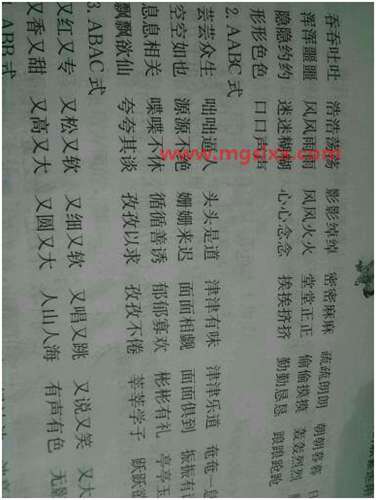 吞吞吐吐 浩浩荡荡 影影绰绰 密密麻麻 疏疏朗朗 朝朝暮暮
浑浑噩噩 风风雨雨 风风火火 堂堂正正 偷偷摸摸 轰轰烈烈
隐隐约约 迷迷糊糊 心心念念 挨挨挤挤 勤勤恳恳 踉踉跄跄
形形色色 口口声声
2. AABC 式
芸芸众生 咄咄逼人 头头是道 津津有味 津津乐道 奄奄一
空空如也 源源不绝 姗姗来迟 面面相觑 面面俱到 振振有
息息相关 喋喋不休 循循善诱 郁郁寡欢 彬彬有礼 亭亭玉
飘飘欲仙 夸夸其谈 孜孜以求 孜孜不倦 莘莘学子 跃跃
3. ABAC 式
又红又专 又松又软 又细又软 又唱又跳 又说又笑 又大
又香又甜 又高又大 又圆又大 人山人海 有声有色 无
ABB 式
www.mgslxx.com